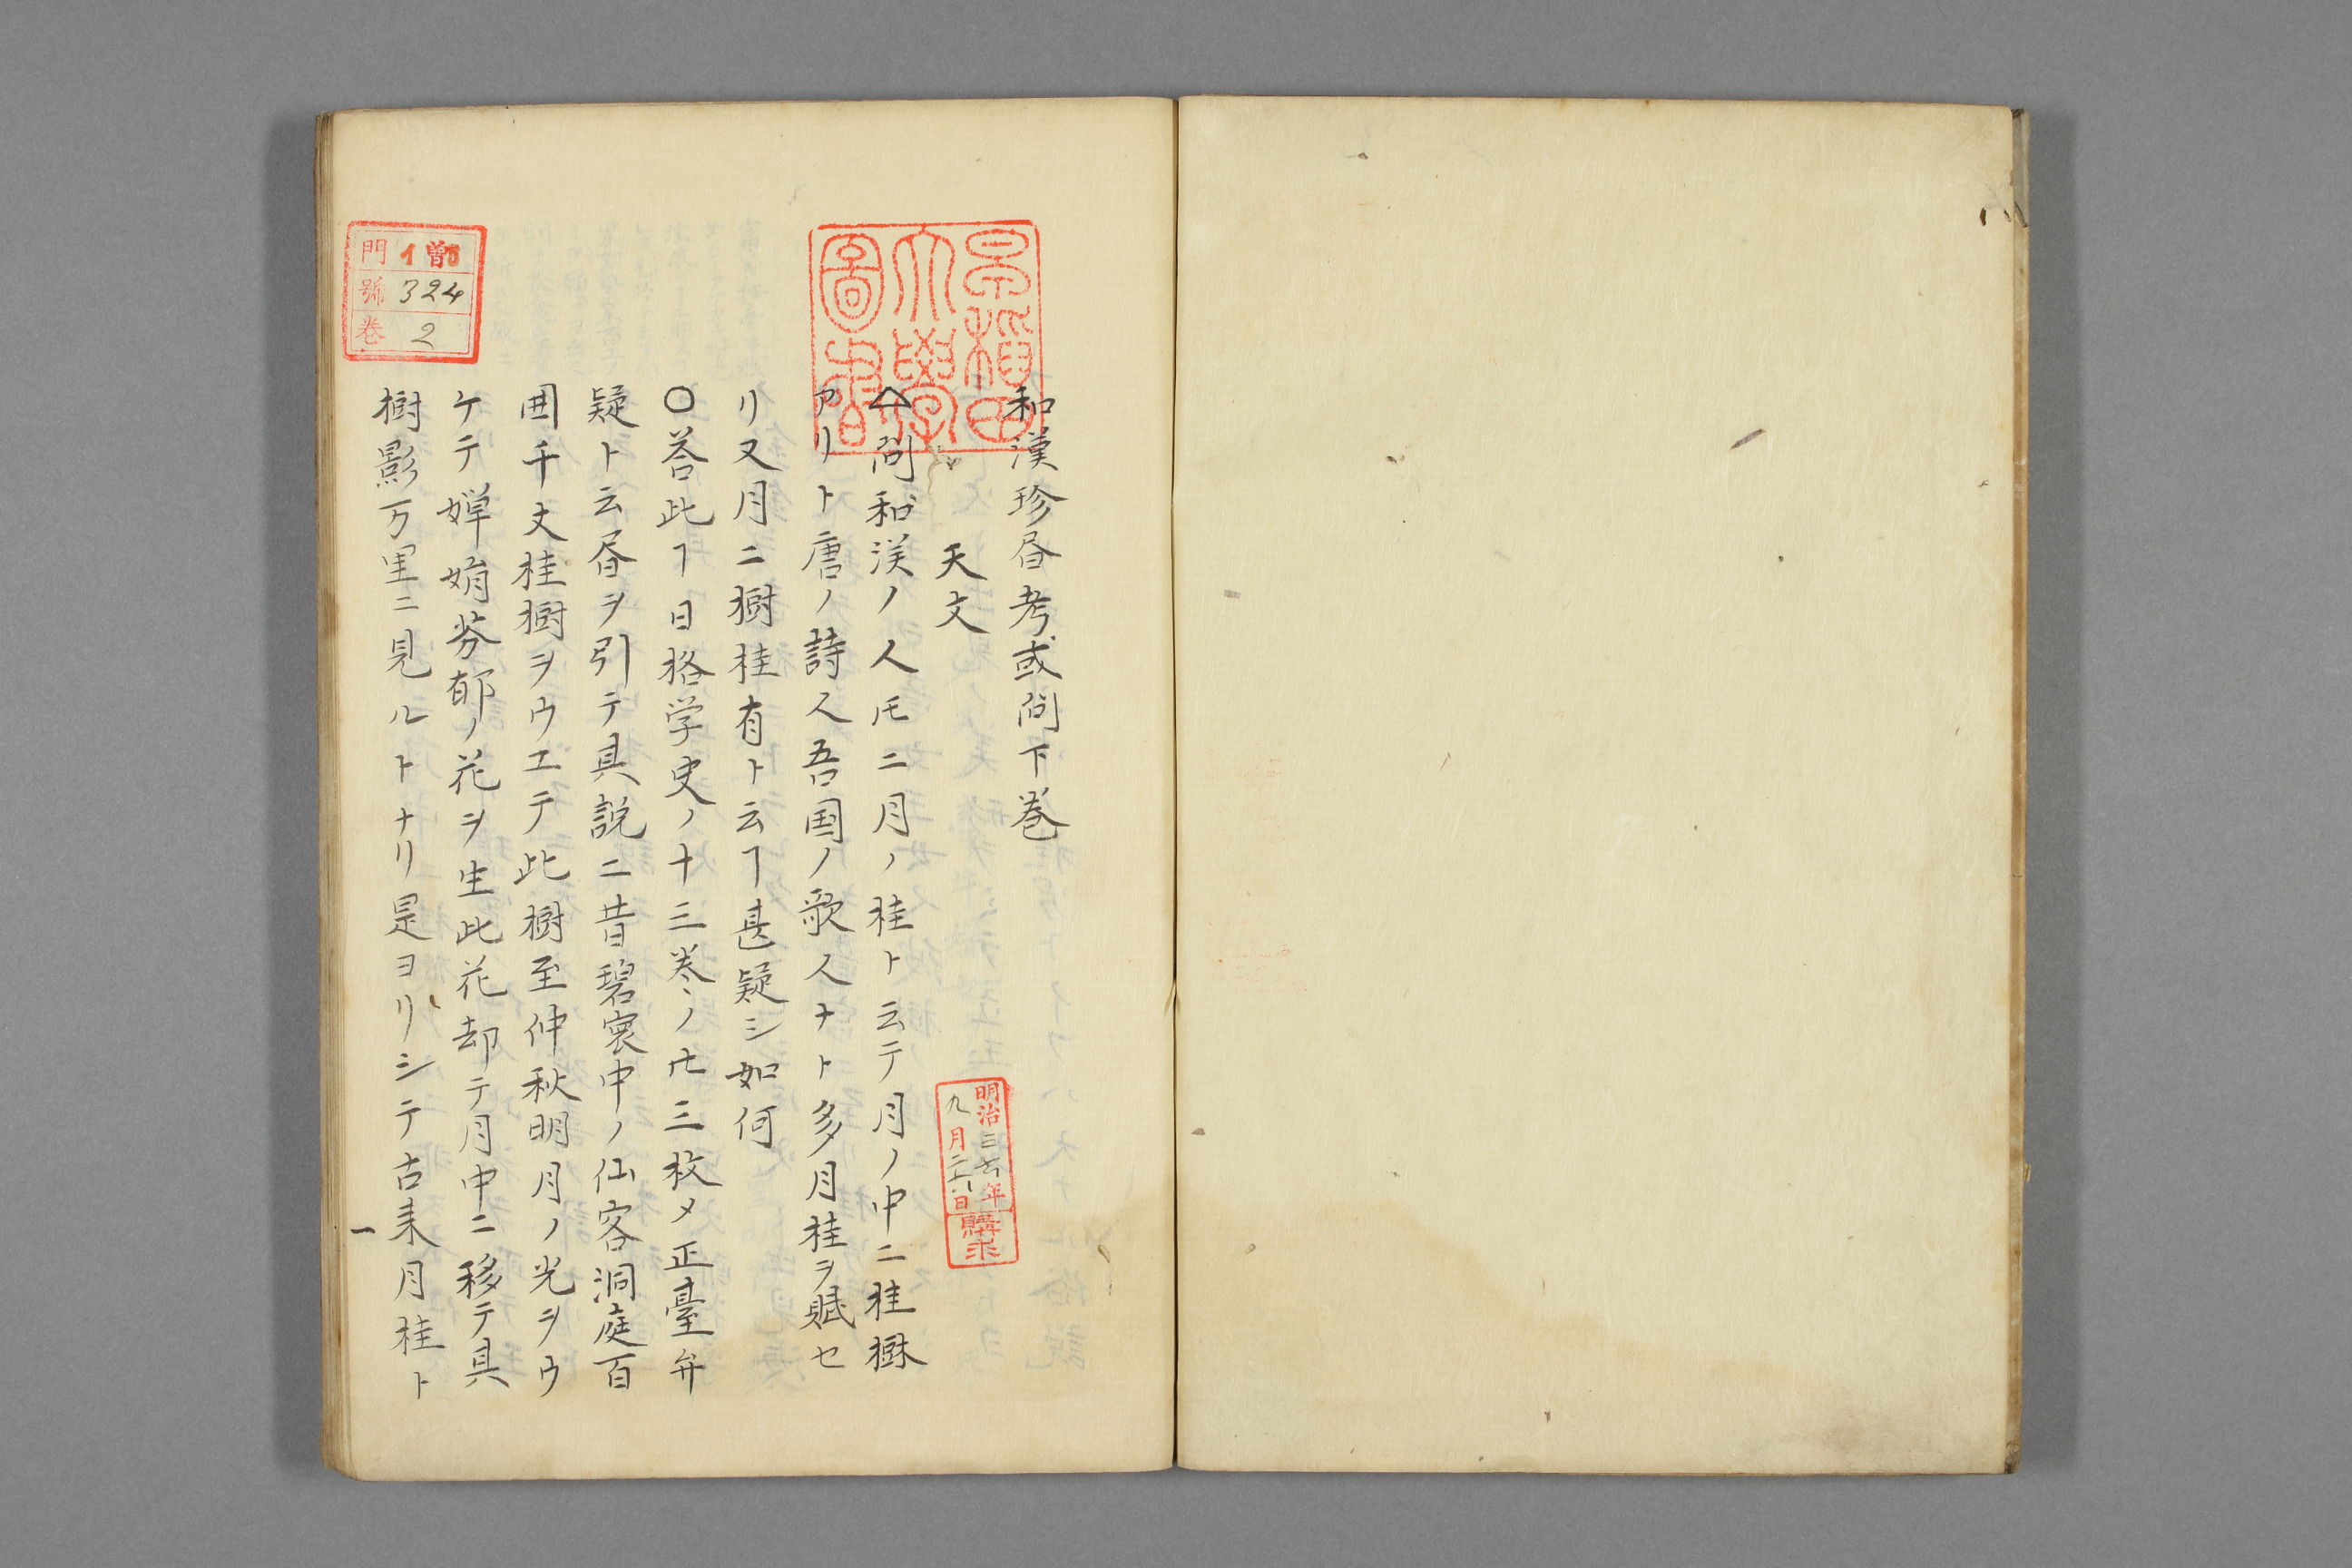 和漢珍昏考或問下巻
天文
△問和漢ノ人𪜈ニ月ノ桂ト云テ月ノ中ニ桂樹
アリト唐ノ詩人吾国ノ歌人ナト多月桂ヲ賦セ
リ又月ニ樹桂有ト云ヿ甚疑シ如何
○荅此ヿ日格学史ノ十三巻ノ廿三枚メ正臺弁
疑ト云昏ヲ引テ具説ニ昔碧裏中ノ仙客洞庭百
囲千丈桂樹ヲウエテ此樹至仲秋明月ノ光ヲウ
ケテ嬋娟芬郁ノ花ヲ生此花却テ月中ニ移テ具
樹影万里ニ見ルトナリ是ヨリシテ古来月桂ト
一
早稲田大學圖書
明治三六年
九月二六日
購求
門 1曽
號 324
巻 2